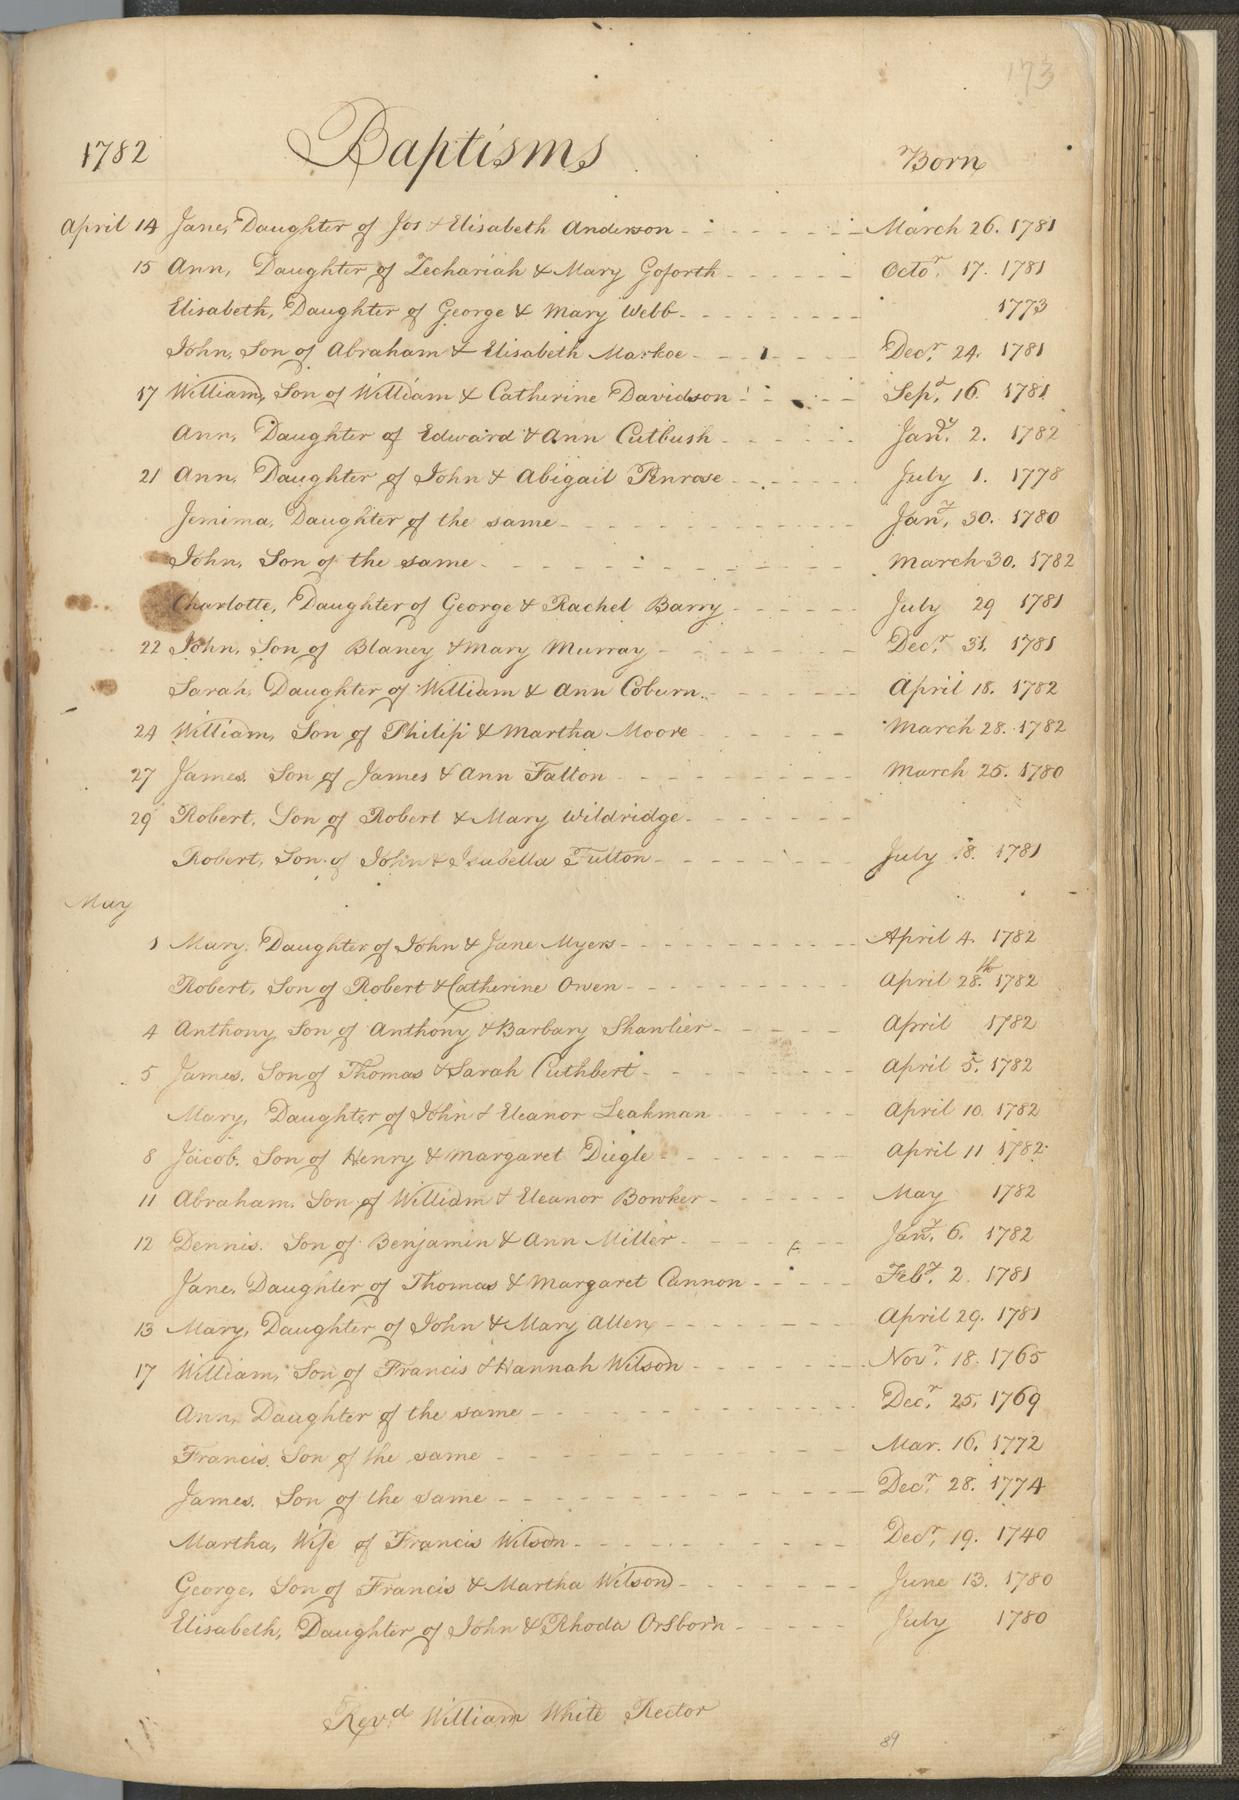 173
1782 Baptisms Born
April 14 Jane, Daughter of Jos & Elisabeth Anderson March 26. 1781
15 Ann, Daughter of Zechariah & Mary Goforth Octor. 17. 1781
Elisabeth, Daughter of George & Mary Webb 1773
John, Son of Abraham & Elisabeth Markoe Decr. 24. 1781
17 William, Son of William & Catherine Davidson Sept. 16. 1781
Ann, Daughter of Edward & Ann Cutbush Jany. 2. 1782
21 Ann, Daughter of John & Abigail Penrose July 1. 1778
Jemima, Daughter of the same Jany. 30. 1780
John, Son of the same March 30. 1782
Charlotte, Daughter of George & Rachel Barry July 29 1781
22 John, Son of Blaney & Mary Murray Decr. 31. 1781
Sarah, Daughter of William & Ann Coburn April 18. 1782
24 William, Son of Philip & Martha Moore March 28. 1782
27 James, Son of James & Ann Fallon March 25. 1780
29 Robert, Son of Robert & Mary Wildridge
Robert, Son of John & Isabella Fulton July 8. 1781
May
1 Mary, Daughter of John & Jane Myers April 4. 1782
Robert, Son of Robert & Catherine Owen April 28th. 1782
4 Anthony Son of Anthony & Barbary Shanlier April 1782
5 James, Son of Thomas & Sarah Cuthbert April 5. 1782
Mary, Daughter of John & Eleanor Leakman April 10. 1782
8 Jacob, Son of Henry & Margaret Diegle April 11 1782
11 Abraham, Son of William & Eleanor Bowker May 1782
12 Dennis, Son of Benjamin & Ann Miller Jany. 6. 1782
Jane, Daughter of Thomas & Margaret Cannon Feby. 2. 1781
13 Mary, Daughter of John & Mary Allen April 29. 1781
17 William, Son of Francis & Hannah Wilson Novr. 18. 1765
Ann, Daughter of the same Decr. 25. 1769
Francis, Son of the same Mar. 16. 1772
James, Son of the same Decr. 28. 1774
Martha, Wife of Francis Wilson Decr. 19. 1740
George, Son of Francis & Martha Wilson June 13. 1780
Elisabeth, Daughter of John & Rhoda Orsborn July 1780
Revd. William White Rector
89